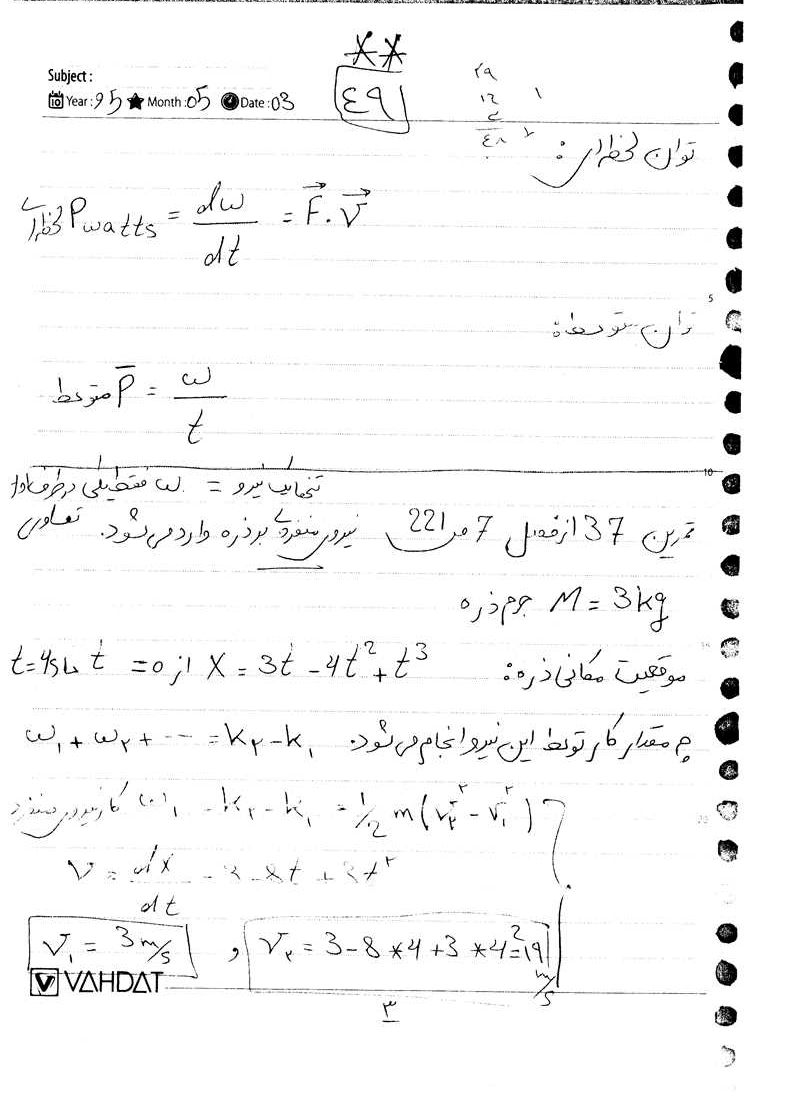 **
Subject :
٤٩
Year : 95 Month : 05 Date : 03
توان لحظه‌ای :
لحظه‌ای P watts = dw/dt = F . V
5
توان متوسط :
متوسط P̄ = ω/t
10
تمرین 37 از فصل 7 ص 221 نیروی منفردی بر ذره وارد می‌شود.
M = 3 kg جرم ذره
موقعیت مکانی ذره : X = 3t - 4t² + t³ از t = 0 تا t = 4s
چه مقدار کار توسط این نیرو انجام می‌شود. ω₁ + ω₂ + ... = k₂ - k₁
کار نیروی منفرد ω₁ = k₂ - k₁ = 1/2 m (v₂² - v₁²)
V = dx/dt = 3 - 8t + 3t²
V₁ = 3 m/s , V₂ = 3 - 8 * 4 + 3 * 4² = 19 m/s
VAHDAT
٣